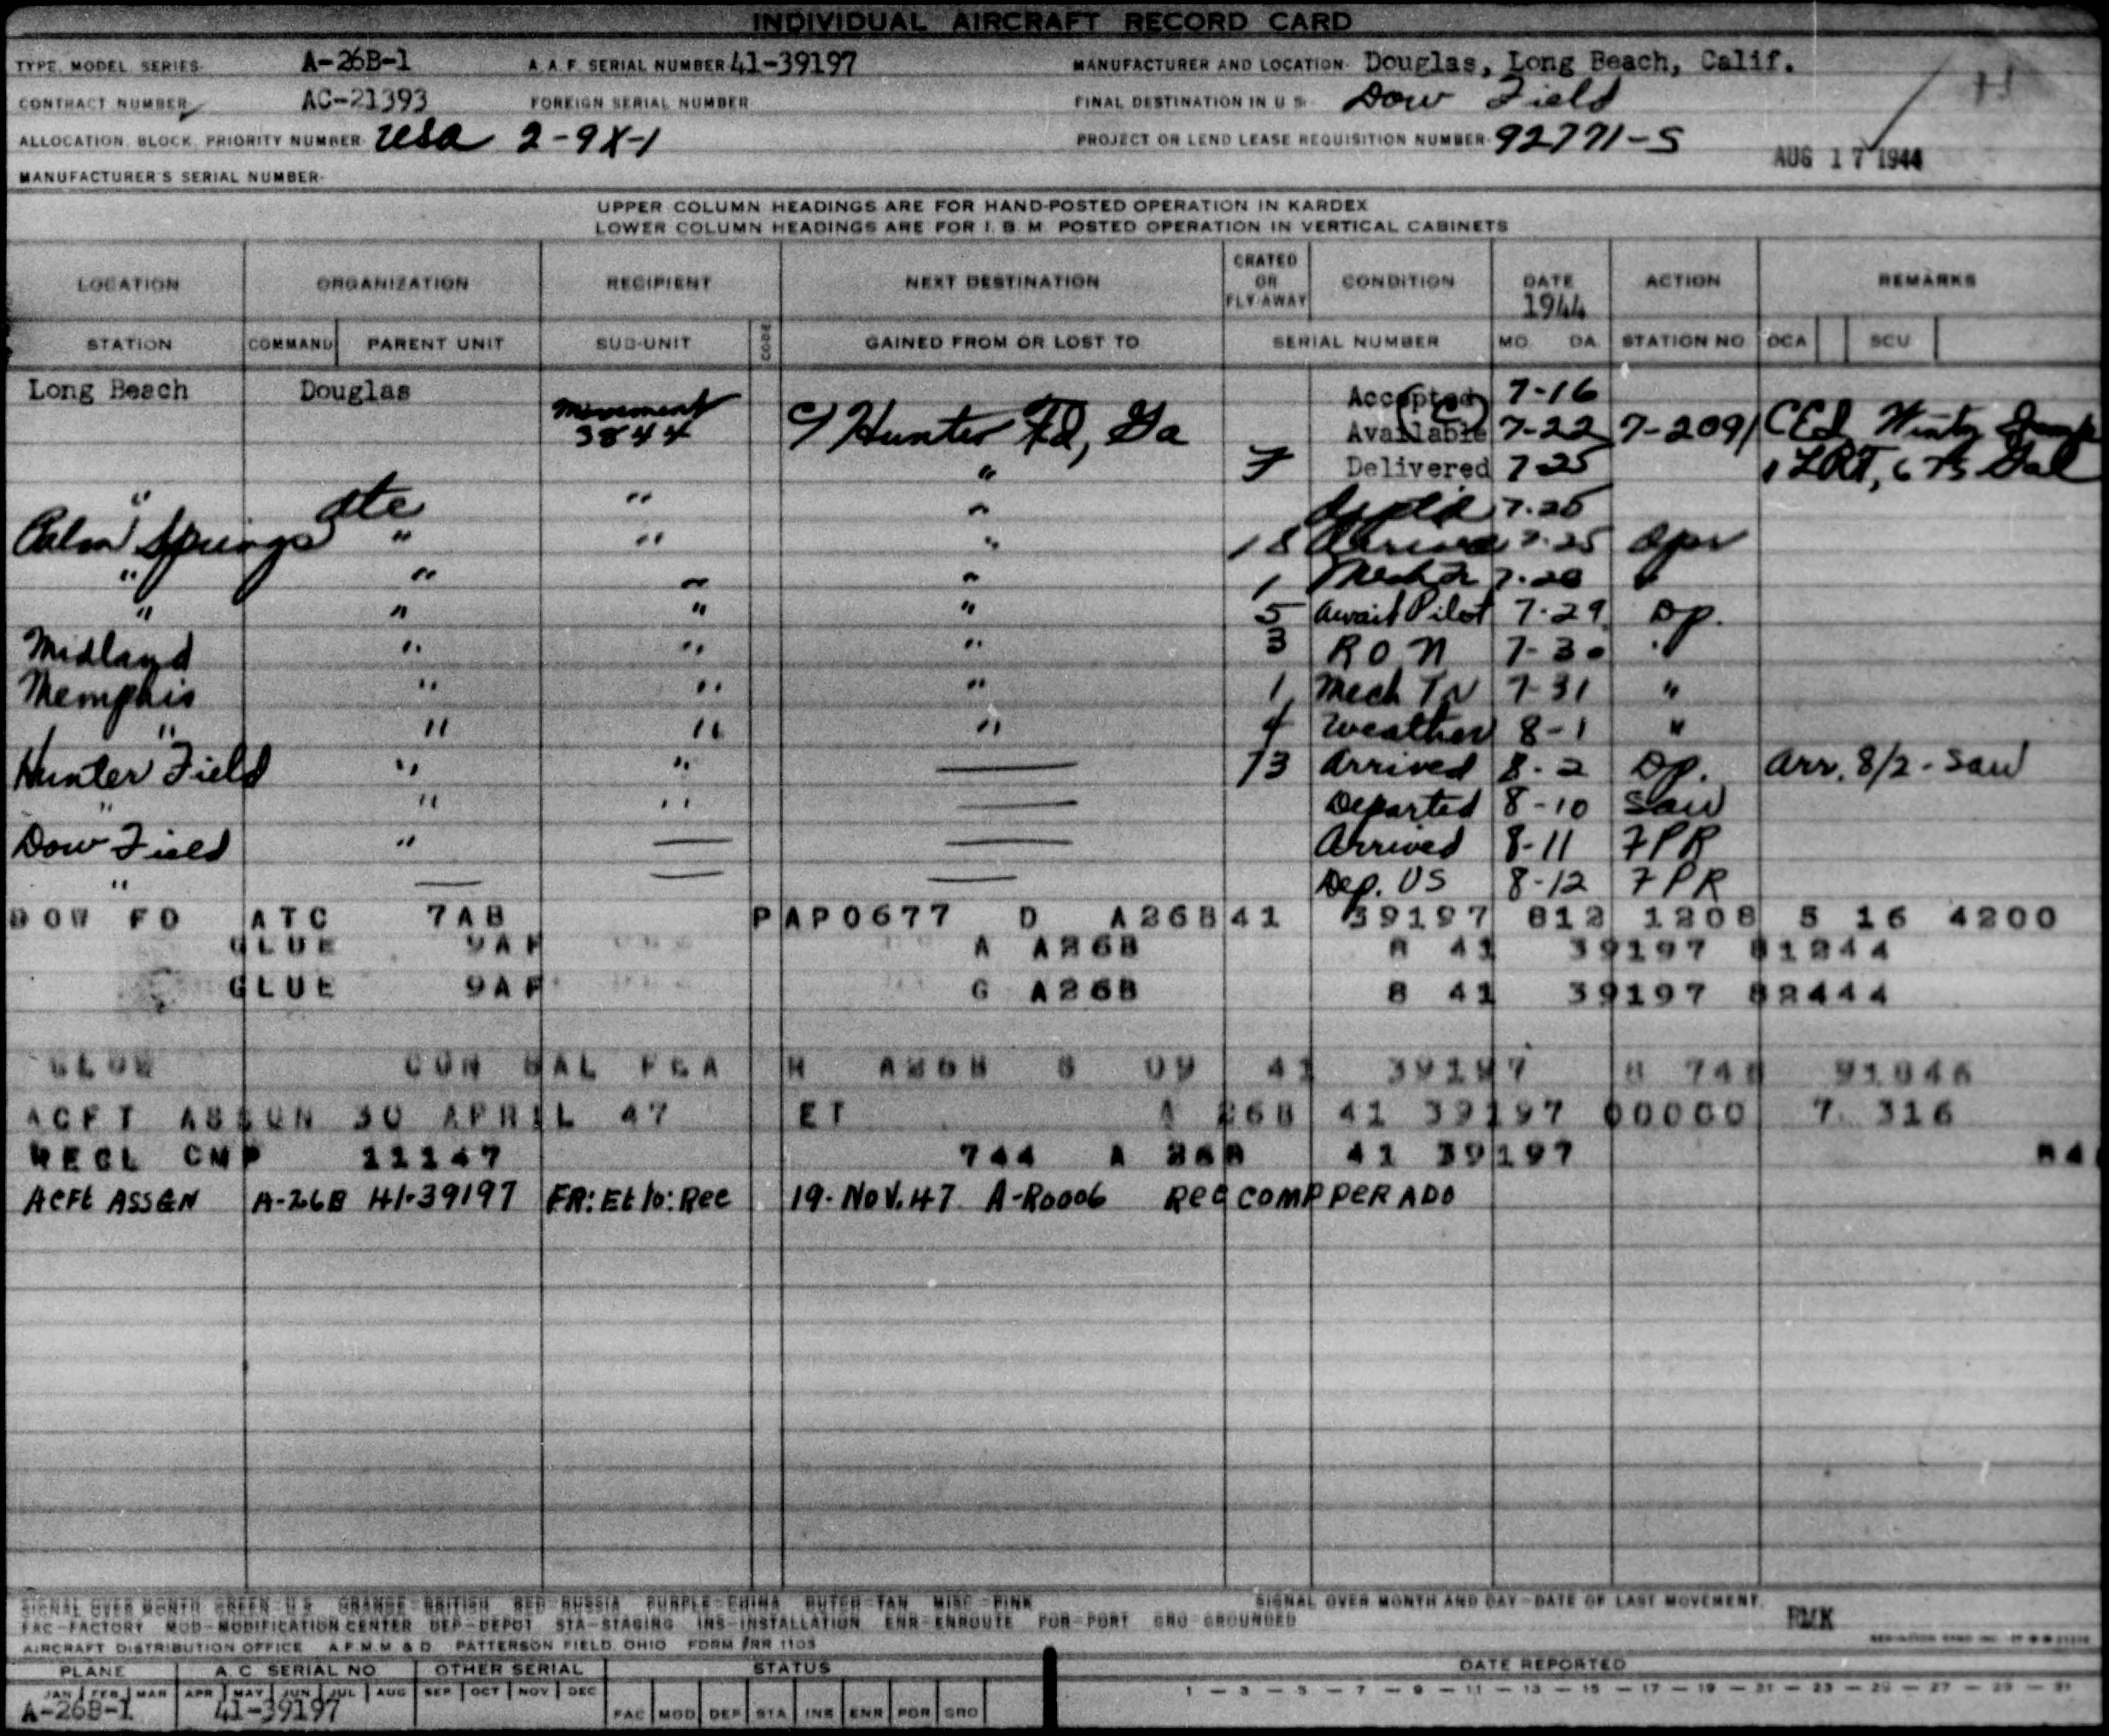 INDIVIDUAL AIRCRAFT RECORD CARD
TYPE, MODEL, SERIES- A-26B-1 A.A.F. SERIAL NUMBER 41-39197 MANUFACTURER AND LOCATION- Douglas, Long Beach, Calif.
CONTRACT NUMBER AC-21393 FOREIGN SERIAL NUMBER FINAL DESTINATION IN U S- Dow Field
ALLOCATION, BLOCK, PRIORITY NUMBER- USA 2-9X-1 PROJECT OR LEND LEASE REQUISITION NUMBER- 92771-S
AUG 17 1944
MANUFACTURER'S SERIAL NUMBER-
UPPER COLUMN HEADINGS ARE FOR HAND-POSTED OPERATION IN KARDEX
LOWER COLUMN HEADINGS ARE FOR I. B. M. POSTED OPERATION IN VERTICAL CABINETS
LOCATION ORGANIZATION RECIPIENT NEXT DESTINATION CRATED OR FLY-AWAY CONDITION DATE 1944 ACTION REMARKS
STATION COMMAND PARENT UNIT SUB-UNIT CODE GAINED FROM OR LOST TO SERIAL NUMBER MO. DA. STATION NO OCA SCU
Long Beach Douglas Accepted 7-16
Movement 3844 Hunter Fd, Ga Available 7-22 7-2091
" 7 Delivered 7-25
" " " 7-25
Palm Springs " " " 18 Arrived 7-25
" " " " 1
" " " " 5 Await Pilot 7-29 Op.
Midland " " " 3 RON 7-30 "
Memphis " " " 1 Mech Tr 7-31 "
" " " " 4 Weather 8-1 "
Hunter Field " " — 13 Arrived 8-2 Op. Arr. 8/2 - Saw
" " " — Departed 8-10 Saw
Dow Field " — — Arrived 8-11 7PR
" — — — Dep. US 8-12 7PR
DOW FD ATC 7AB P APO677 D A26B 41 39197 812 1208 5 16 4200
GLUE 9AF A A26B 8 41 39197 81244
GLUE 9AF G A26B 8 41 39197 82444
CON SAL A26B 41 39197
ACFT ASSGN 30 APRIL 47 ET A 26B 41 39197 00000 7 316
RECL CMP 11147 744 A 26B 41 39197
ACFt ASSGN A-26B 41-39197 FR: Et to: Rec 19-NOV.47 A-R0006 Rec COMP PER ADO
SIGNAL OVER MONTH GREEN=U.S. ORANGE=BRITISH RED=RUSSIA PURPLE=CHINA DUTCH=TAN MISC=PINK SIGNAL OVER MONTH AND DAY-DATE OF LAST MOVEMENT.
FAC-FACTORY MOD-MODIFICATION CENTER DEP-DEPOT STA-STAGING INS-INSTALLATION ENR-ENROUTE POR-PORT GRO-GROUNDED
RMK
AIRCRAFT DISTRIBUTION OFFICE A.F.M.M & D. PATTERSON FIELD, OHIO
PLANE A.C. SERIAL NO OTHER SERIAL STATUS DATE REPORTED
JAN FEB MAR APR MAY JUN JUL AUG SEP OCT NOV DEC 1 - 3 - 5 - 7 - 9 - 11 - 13 - 15 - 17 - 19 - 21 - 23 - 25 - 27 - 29 - 31
A-26B-1 41-39197 FAC MOD DEP STA INS ENR POR GRO